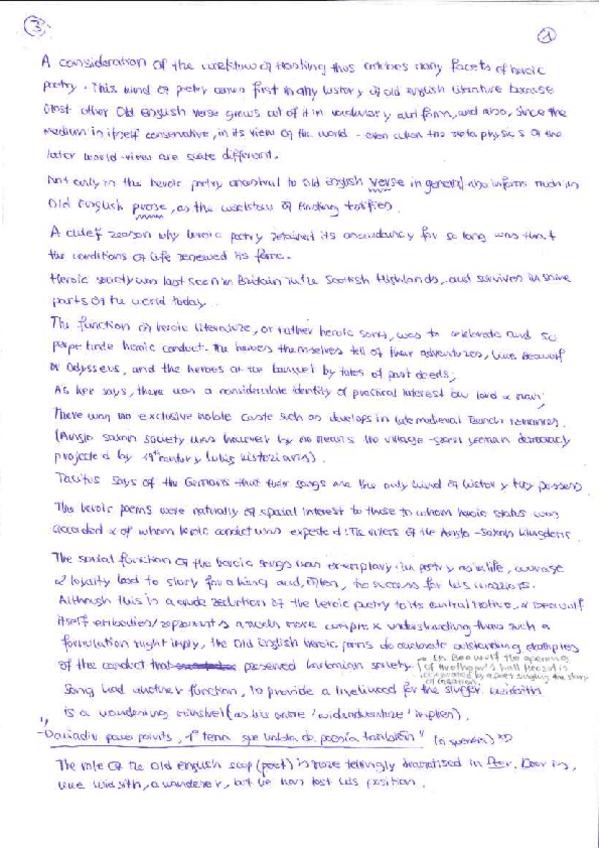 3 1
A consideration of the weelstow of Hasting thus entries many facets of heroic
poetry. This kind of poetry comes first in any history of old english literature because
most other Old English verse grows out of it in vocabulary and form, and also, since the
medium is itself conservative, in its view of the world - even when the metaphysics of the
later world-view are quite different.
Not only is the heroic poetry ancestral to old english verse in general also informs much in
Old English prose, as the of testifies.
A chief reason why heroic poetry retained its ascendancy for so long was that
the conditions of life renewed its force.
Heroic society was last seen in Britain in the Scottish Highlands, and survives in some
parts of the world today.
The function of heroic literature, or rather heroic song, was to celebrate and so
perpetuate heroic conduct. The heroes themselves tell of their adventures, like Beowulf
or Odysseus, and the heroes at the banquet by tales of past deeds;
As Ker says, there was a considerable identity of practical interest bw lord & man;
There was no exclusive noble caste such as develops in late medieval French romances.
(Anglo saxon society was however by no means the village-green yeoman democracy
projected by 19th century historians).
Tacitus says of the Germans that their songs are the only kind of history they possess
The heroic poems were naturally of special interest to those to whom heroic status was
accorded & of whom heroic conduct was expected: The rulers of the Anglo-Saxon kingdoms.
The social function of the heroic songs was exemplary: in poetry as in life, courage
& loyalty lead to glory for a king and, often, to success for his warriors.
Although this is a crude reduction of the heroic poetry to its central motive, & Beowulf
itself embodies/represents a much more complex understanding than such a
formulation might imply, the Old English heroic poems do celebrate outstanding examples
of the conduct that preserved barbarian society. → In Beowulf the opening
of Hrothgar's hall Heorot is
celebrated by a poet singing the story
of creation.
Song had another function, to provide a livelihood for the singer. Widsith
is a wandering minstrel (as his name 'wide adventure' implies).
"-Daniadir power points, 1º tema que habla de poesía también"
The role of the old english scop (poet) is more tellingly dramatised in Deor. Deor is,
like widsith, a wanderer, but he has lost his position.